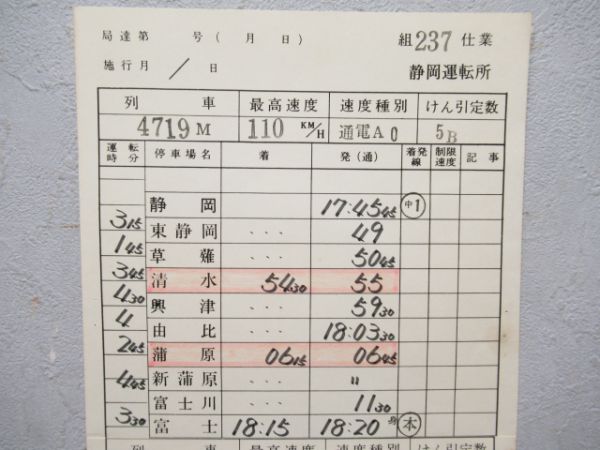 局達第 号( 月 日) 組237仕業
施行月 / 日 静岡運転所
列車 最高速度 速度種別 けん引定数
4719M 110 KM/H 通電A0 5B
運転時分 停車場名 着 発(通) 着発線 制限速度 記事
静岡 17:45 45 中1
3 15
東静岡 ... 49
1 45
草薙 ... 50 45
3 45
清水 54 30 55
4 30
興津 ... 59 30
4
由比 ... 18:03 30
2 45
蒲原 06 15 06 45
新蒲原 ... 〃
4 45
富士川 ... 11 30
3 30
富士 18:15 18:20 本
列車 最高速度 速度種別 けん引定数